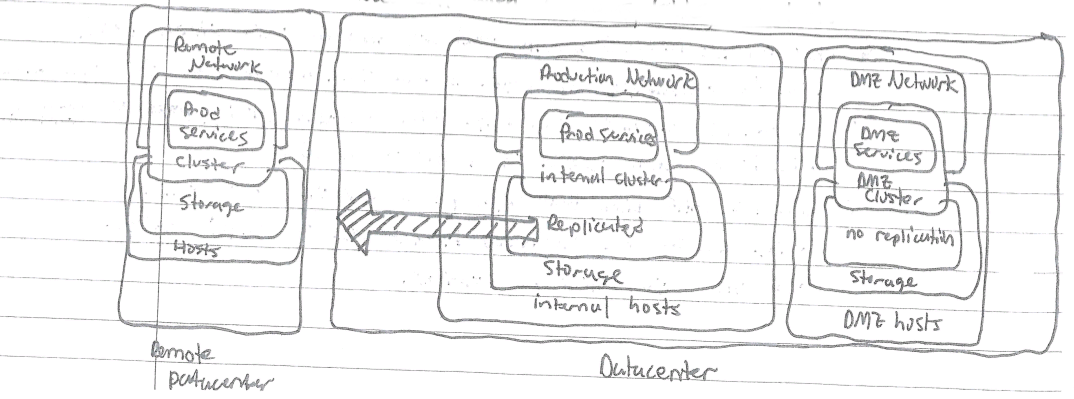 Remote
Network
Prod
services
Cluster
Storage
Hosts
Remote
Datacenter
Production Network
Prod services
internal cluster
Replicated
Storage
internal hosts
DMZ Network
DMZ
Services
DMZ
Cluster
no replication
Storage
DMZ hosts
Datacenter